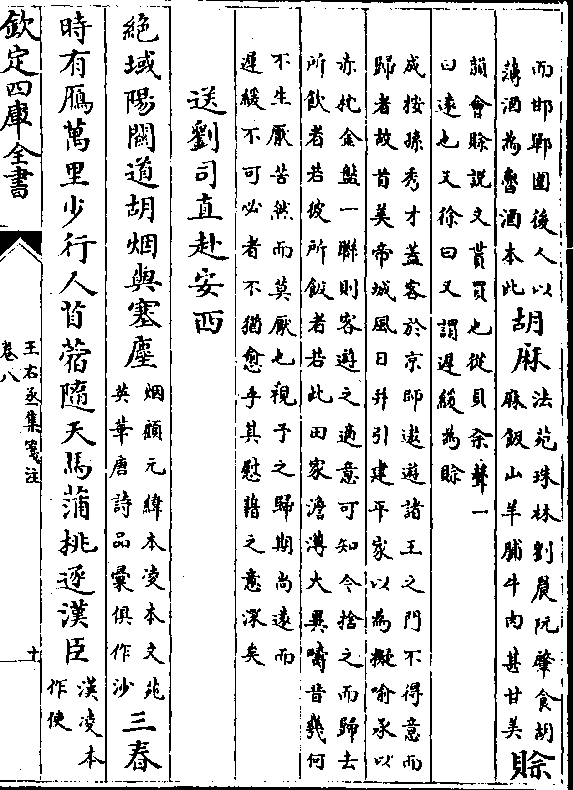 而邯鄲圍後人以
薄酒為魯酒本此
胡麻
法苑珠林劉晨阮肇食胡
麻飯山羊脯牛肉甚甘美
賒
韻會賒說文貰買也從貝余聲一
曰遠也又徐曰又謂遲緩為賒
成按孫秀才蓋客於京師遨遊諸王之門不得意而
歸者故首美帝城風日幷引建平家以為擬喻承以
亦枕金盤一聯則客遊之適意可知今捨之而歸去
所飲者若彼所飯者若此田家澹薄大異疇昔幾何
不生厭苦然而莫厭也視予之歸期尚遠而
遲緩不可必者不猶愈乎其慰藉之意深矣
送劉司直赴安西
絶域陽關道胡烟與塞塵
烟顧元緯本凌本文苑
英華唐詩品彙俱作沙
三春
時有鴈萬里少行人苜蓿隨天馬蒲桃逐漢臣
漢凌本
作使
欽定四庫全書
王右丞集箋注
卷八
十